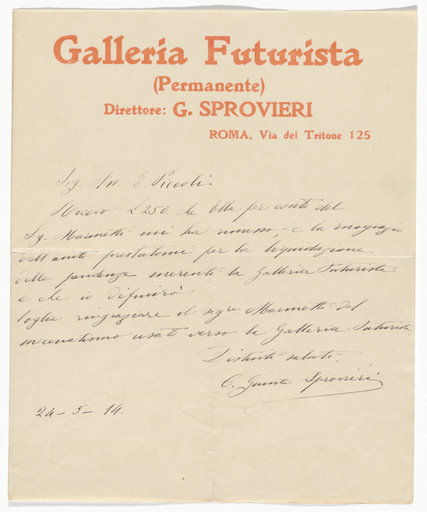 Galleria Futurista
(Permanente)
Direttore: G. SPROVIERI
ROMA, Via del Tritone 125
Sig. Avv. E. Piccoli.
Ricevo £ 250. che Ella per conto del
Sig. Marinetti mi ha rimesso, e la ringrazio
dell' aiuto prestatomi per la liquidazione
delle pendenze inerenti la Galleria Futurista
e che io definirò
Voglia ringraziare il sigre Marinetti del
mecenatismo usato verso la Galleria Futurista
Distinti saluti.
Sprovieri
24-5-14.